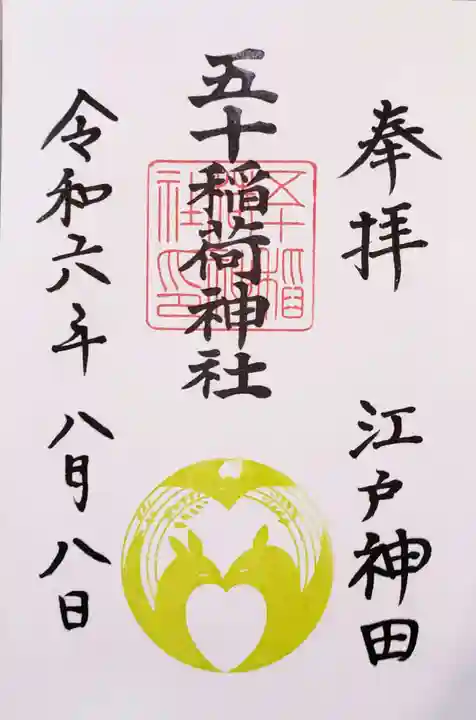 奉拝 江戸神田
五十稲荷神社
令和六年 八月八日